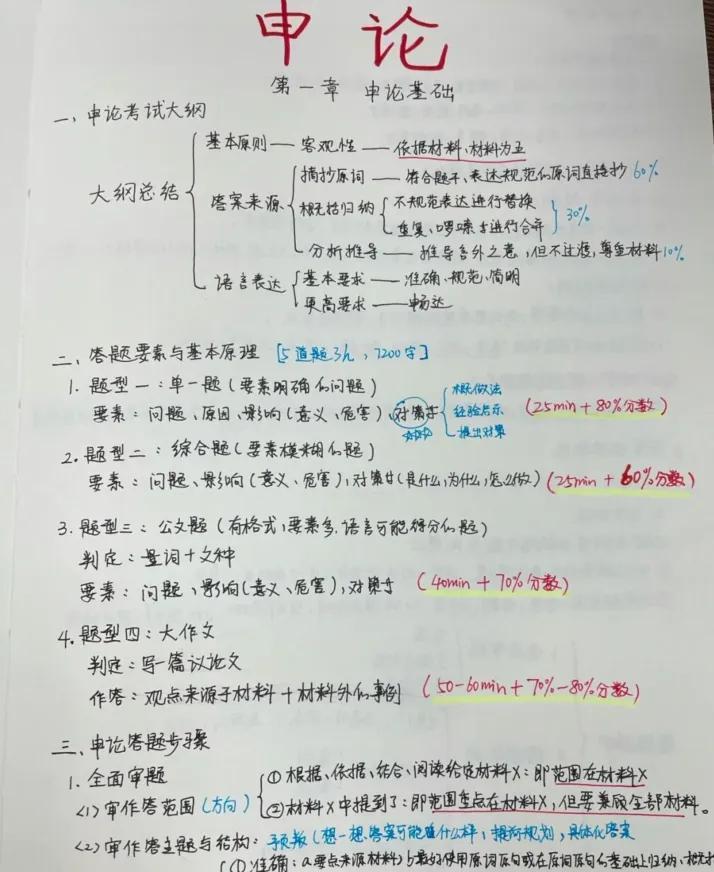 申论
第一章 申论基础
一、申论考试大纲
大纲总结
基本原则——客观性——依据材料、材料为王
答案来源
摘抄原词——符合题干、表达规范的原词直接抄 60%
概括归纳
不规范表达进行替换
重复、啰嗦的进行合并
30%
分析推导——推导言外之意,但不过度,尊重材料 10%
语言表达
基本要求——准确、规范、简明
更高要求——畅达
二、答题要素与基本原理 [5道题3h,7200字]
1. 题型一:单一题(要素明确的问题)
要素:问题、原因、影响(意义、危害)、对策
概做法
经验启示
提出对策
(25min+80%分数)
2. 题型二:综合题(要素模糊的题)
要素:问题、影响(意义、危害),对策(是什么,为什么,怎么做) (25min+60%分数)
3. 题型三:公文题(有格式,要素多,语言可能得分的题)
判定:量词+文种
要素:问题、影响(意义、危害),对策 (40min+70%分数)
4. 题型四:大作文
判定:写一篇议论文
作答:观点来源于材料+材料外的事例 (50-60min+70%-80%分数)
三、申论答题步骤
1. 全面审题
<1) 审作答范围(方向)
①根据、依据、结合、阅读给定材料X:即范围在材料X
②材料X中提到了:即范围重点在材料X,但要兼顾全部材料。
<2) 审作答主题与结构:预判(想一想答案可能是什么样,提前规划,具体化答案
①准确:a.要点来源材料)b最好使用原词原句或在原词原句的基础上归纳、概括